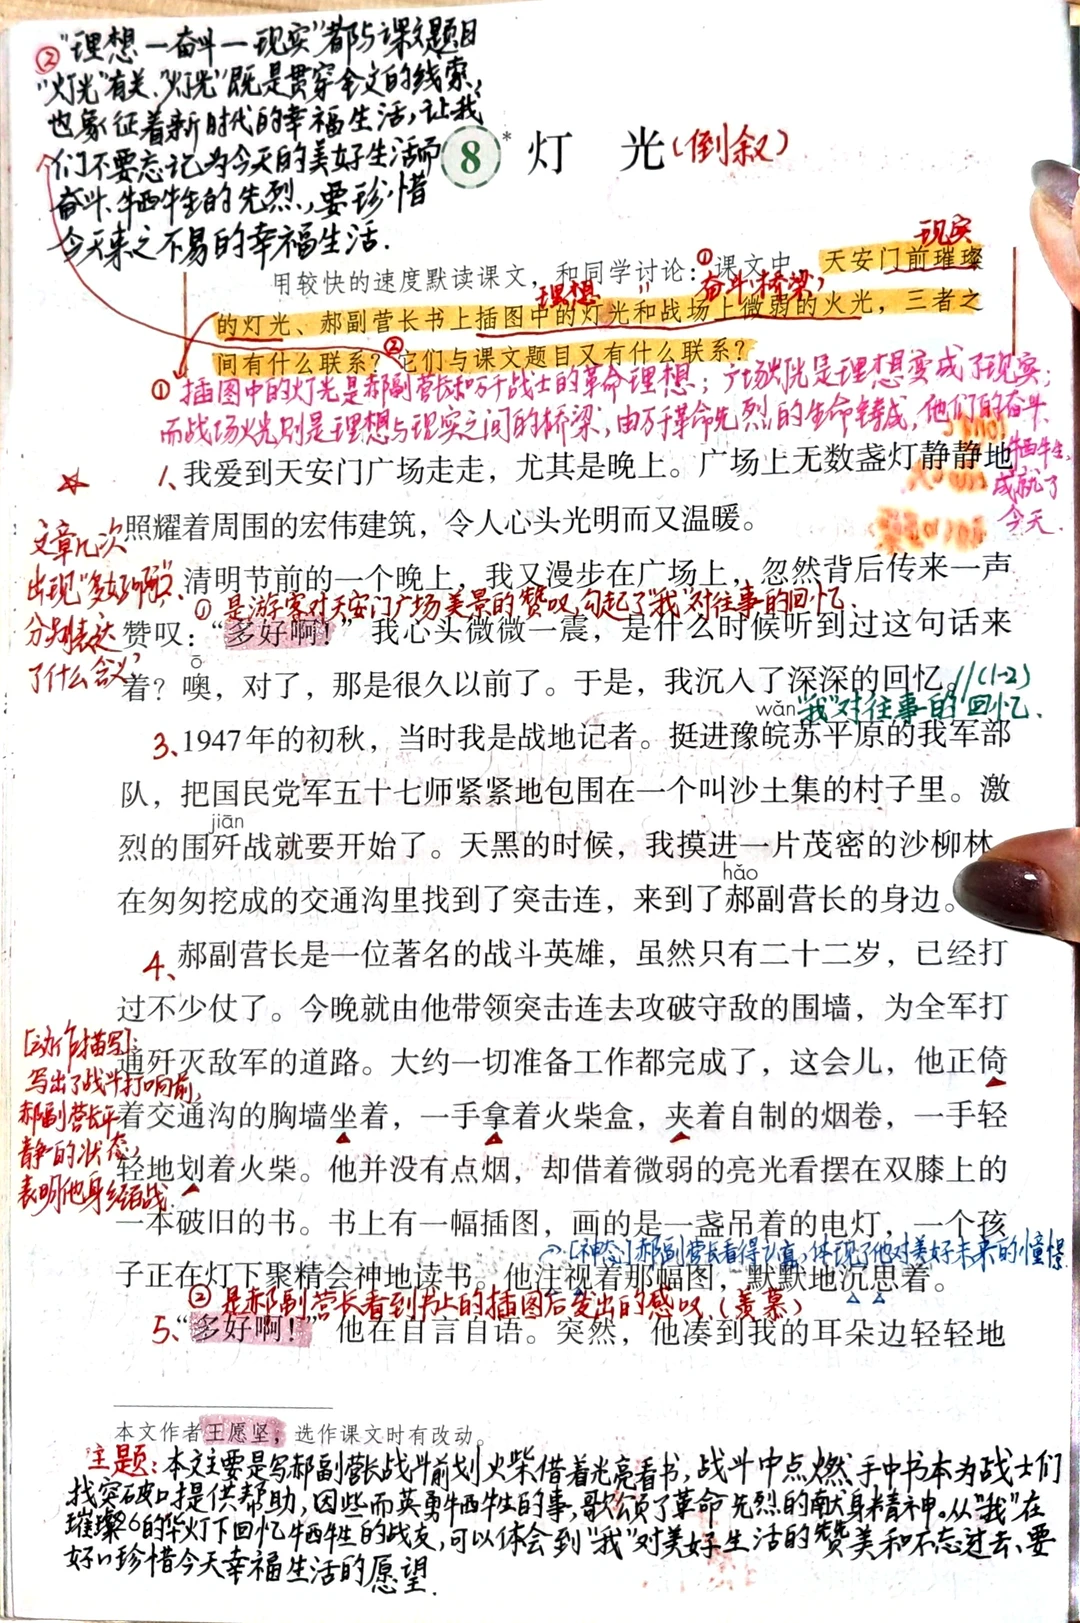 ②“理想一奋斗一现实”都与课文题目
“灯光”有关、“灯光”既是贯穿全文的线索,
也象征着新时代的幸福生活,让我
们不要忘记为今天的美好生活而
奋斗、牺牲的先烈,要珍惜
今天来之不易的幸福生活.
8* 灯 光(倒叙)
现实
用较快的速度默读课文，和同学讨论：①课文中，天安门前璀璨
理想 奋斗、桥梁,
的灯光、郝副营长书上插图中的灯光和战场上微弱的火光，三者之
间有什么联系？②它们与课文题目又有什么联系？
①插图中的灯光是郝副营长和万千战士的革命理想；广场灯光是理想变成了现实；
而战场火光则是理想与现实之间的桥梁；由万千革命先烈的生命铸成,他们的奋斗、
牺牲,
成就了
今天.
1、我爱到天安门广场走走，尤其是晚上。广场上无数盏灯静静地
照耀着周围的宏伟建筑，令人心头光明而又温暖。
文章几次
出现“多好啊”,
分别表达
了什么含义?
清明节前的一个晚上，我又漫步在广场上，忽然背后传来一声
①是游客对天安门广场美景的赞叹,勾起了“我”对往事的回忆.
赞叹：“多好啊！”我心头微微一震，是什么时候听到过这句话来
ō
着？噢，对了，那是很久以前了。于是，我沉入了深深的回忆。//(1-2)
“我”对往事的回忆.
wǎn
3、1947年的初秋，当时我是战地记者。挺进豫皖苏平原的我军部
队，把国民党军五十七师紧紧地包围在一个叫沙土集的村子里。激
jiān
烈的围歼战就要开始了。天黑的时候，我摸进一片茂密的沙柳林，
hǎo
在匆匆挖成的交通沟里找到了突击连，来到了郝副营长的身边。
4、郝副营长是一位著名的战斗英雄，虽然只有二十二岁，已经打
过不少仗了。今晚就由他带领突击连去攻破守敌的围墙，为全军打
通歼灭敌军的道路。大约一切准备工作都完成了，这会儿，他正倚
着交通沟的胸墙坐着，一手拿着火柴盒，夹着自制的烟卷，一手轻
轻地划着火柴。他并没有点烟，却借着微弱的亮光看摆在双膝上的
一本破旧的书。书上有一幅插图，画的是一盏吊着的电灯，一个孩
[动作描写]:
写出了战斗打响前,
郝副营长平
静的状态,
表明他身经百战.
[神态]郝副营长看得认真,体现了他对美好未来的憧憬.
子正在灯下聚精会神地读书。他注视着那幅图，默默地沉思着。
②是郝副营长看到书上的插图后发出的感叹.(羡慕)
5、“多好啊！”他在自言自语。突然，他凑到我的耳朵边轻轻地
本文作者王愿坚，选作课文时有改动。
主题:本文主要是写郝副营长战斗前划火柴借着光亮看书,战斗中点燃手中书本为战士们
找突破口提供帮助,因此而英勇牺牲的事,歌颂了革命先烈的献身精神。从“我”在
璀璨的华灯下回忆牺牲的战友,可以体会到“我”对美好生活的赞美和不忘过去、要
好好珍惜今天幸福生活的愿望.
26